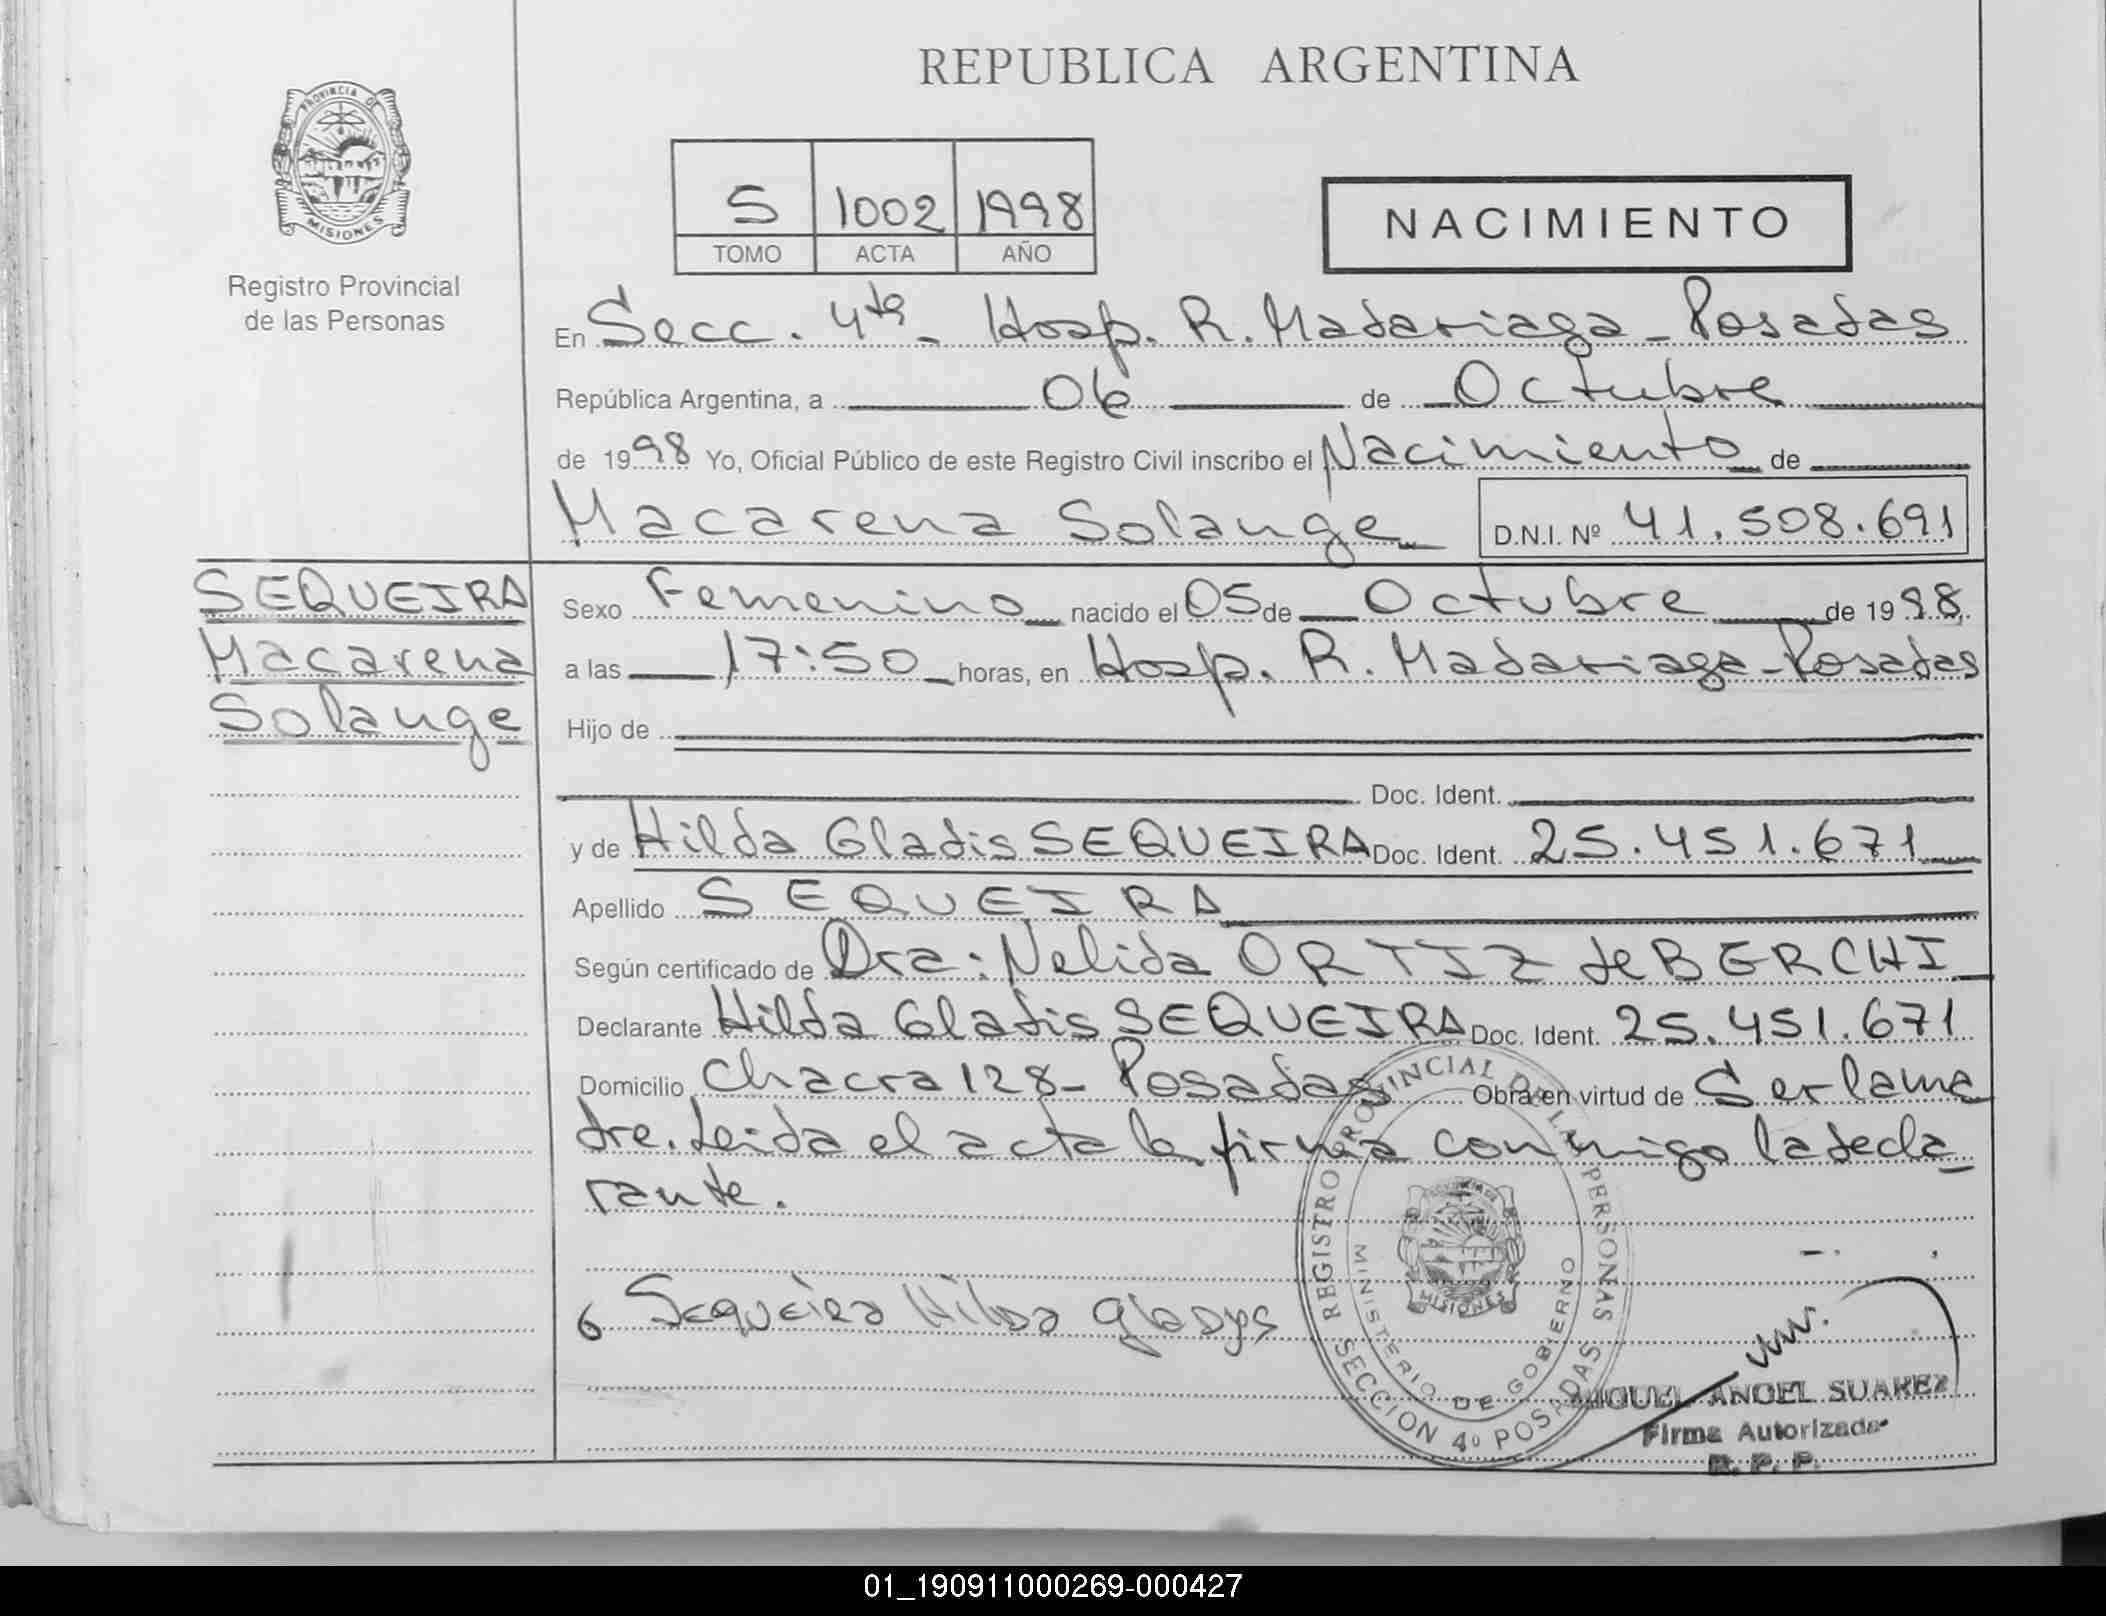 REPUBLICA ARGENTINA
PROVINCIA DE
MISIONES
Registro Provincial
de las Personas
S 1002 1998
TOMO ACTA AÑO
NACIMIENTO
En Secc. 4ta - Hosp. R. Madariaga - Posadas
República Argentina, a 06 de Octubre
de 1998 Yo, Oficial Público de este Registro Civil inscribo el Nacimiento de
Macarena Solange D.N.I. Nº 41.508.691
SEQUEIRA
Macarena
Solange
Sexo Femenino nacido el 05 de Octubre de 1998,
a las 17:50 horas, en Hosp. R. Madariaga - Posadas
Hijo de
Doc. Ident.
y de Hilda Gladis SEQUEIRA Doc. Ident. 25.451.671
Apellido SEQUEIRA
Según certificado de Dra: Nelida ORTIZ de BERCHI
Declarante Hilda Gladis SEQUEIRA Doc. Ident. 25.451.671
Domicilio Chacra 128 - Posadas Obra en virtud de Ser la ma
dre. Leida el acta la firma conmigo la decla
rante.
Sequeira Hilda gladys
REGISTRO PROVINCIAL DE LAS PERSONAS
MINISTERIO DE GOBIERNO
MISIONES
SECCION 4º POSADAS
MIGUEL ANGEL SUAREZ
Firma Autorizada
R. P. P.
01_190911000269-000427